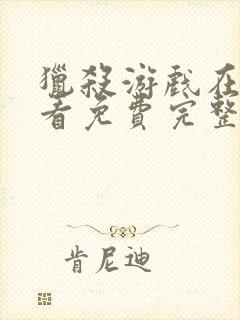 獵殺游戲在
看免費完整
肯尼迪